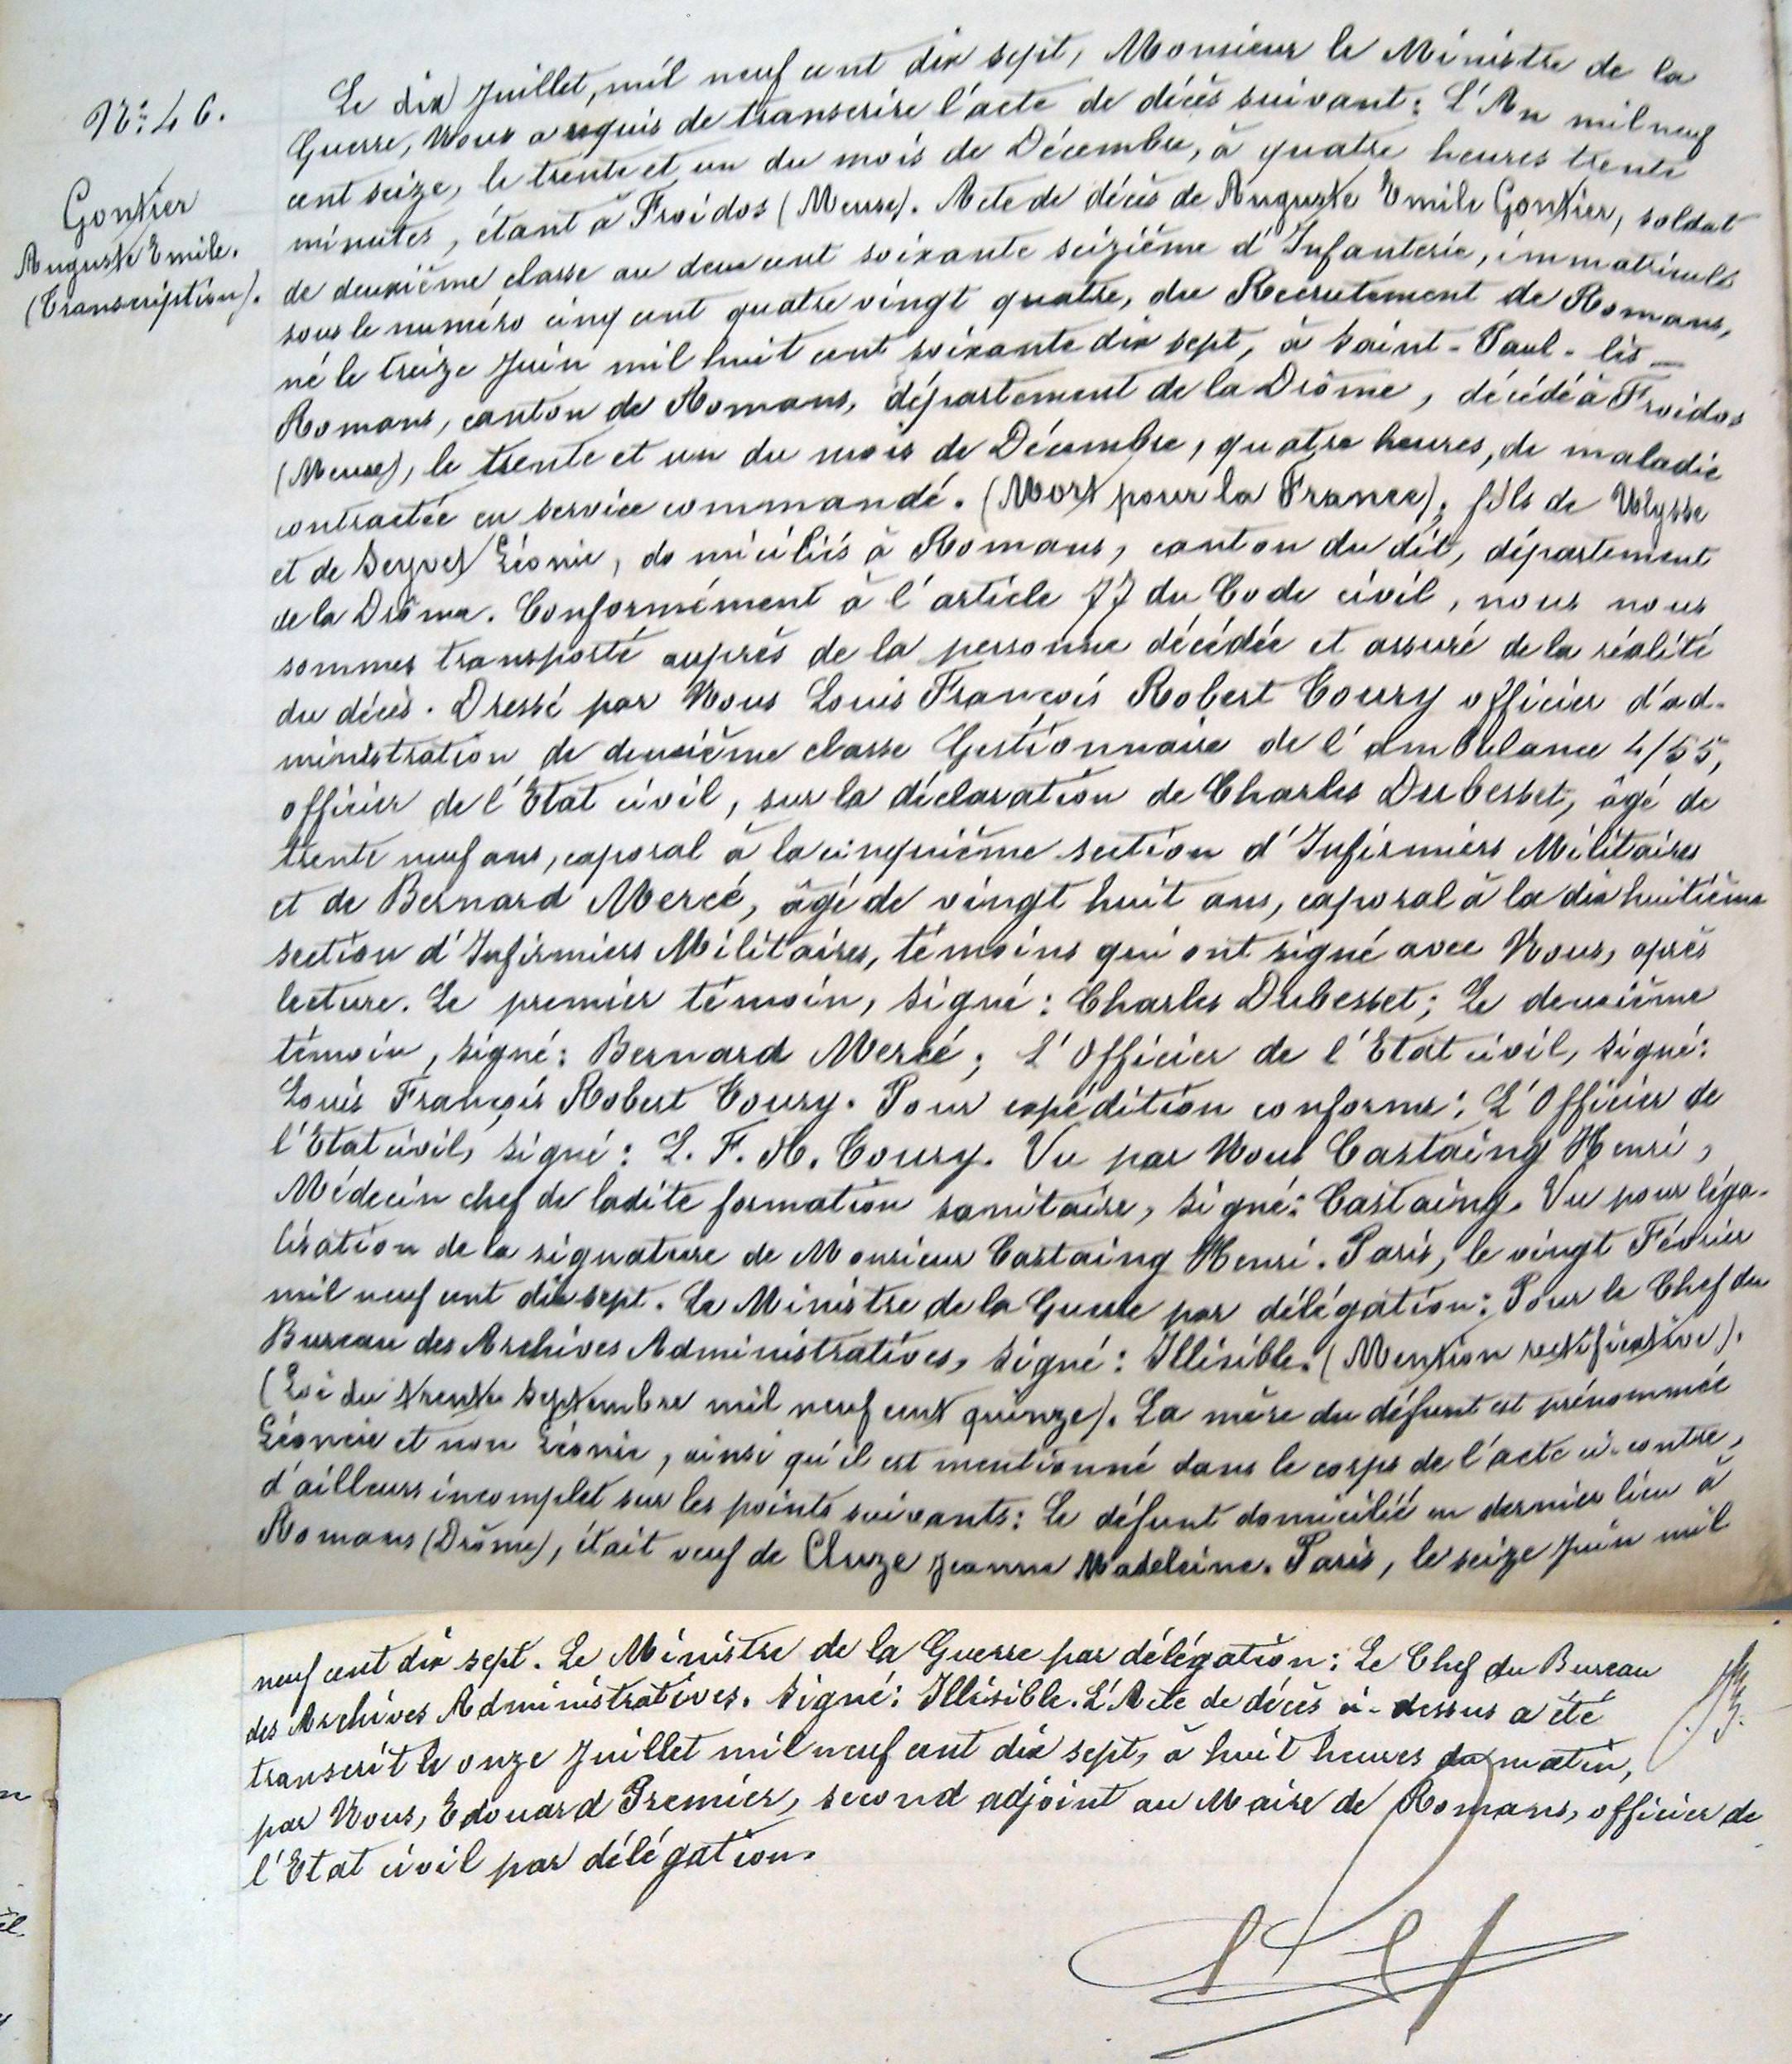 N°: 46.
Gontier
Auguste Emile.
(Transcription).
Le dix Juillet, mil neuf cent dix sept, Monsieur le Ministre de la
Guerre, Nous a requis de transcrire l'acte de décès suivant: L'An mil neuf
cent seize, le trente et un du mois de Décembre, à quatre heures trente
minutes, étant à Froidos (Meuse). Acte de décès de Auguste Emile Gontier, soldat
de deuxième classe au deux cent soixante seizième d'Infanterie, immatriculé
sous le numéro cinq cent quatre vingt quatre, du Recrutement de Romans,
né le treize Juin mil huit cent soixante dix sept, à Saint-Paul-lès-
Romans, canton de Romans, département de la Drôme, décédé à Froidos
(Meuse), le trente et un du mois de Décembre, quatre heures, de maladie
contractée en service commandé. (Mort pour la France), fils de Ulysse
et de Seyvet Léonie, domiciliés à Romans, canton du dit, département
de la Drôme. Conformément à l'article 77 du Code civil, nous nous
sommes transporté auprès de la personne décédée et assuré de la réalité
du décès. Dressé par Nous Louis François Robert Coury officier d'ad-
ministration de deuxième classe Gestionnaire de l'ambulance 4/55,
officier de l'Etat civil, sur la déclaration de Charles Dubesset, âgé de
trente neuf ans, caporal à la cinquième section d'Infirmiers Militaires
et de Bernard Mercé, âgé de vingt huit ans, caporal à la dix huitième
section d'Infirmiers Militaires, témoins qui ont signé avec Nous, après
lecture. Le premier témoin, signé: Charles Dubesset; Le deuxième
témoin, signé: Bernard Mercé; L'Officier de l'Etat civil, signé:
Louis François Robert Coury. Pour expédition conforme: L'Officier de
l'Etat civil, signé: L. F. R. Coury. Vu par Nous Castaing Henri,
Médecin chef de ladite formation sanitaire, signé: Castaing. Vu pour léga-
lisation de la signature de Monsieur Castaing Henri. Paris, le vingt Février
mil neuf cent dix sept. Le Ministre de la Guerre par délégation: Pour le Chef du
Bureau des Archives Administratives, signé: Illisible. (Mention rectificative).
(Loi du trente Septembre mil neuf cent quinze). La mère du défunt est prénommée
Léoncie et non Léonie, ainsi qu'il est mentionné dans le corps de l'acte ci-contre,
d'ailleurs incomplet sur les points suivants: Le défunt domicilié en dernier lieu à
Romans (Drôme), était veuf de Cluze Jeanne Madeleine. Paris, le seize Juin mil
neuf cent dix sept. Le Ministre de la Guerre par délégation: Le Chef du Bureau
des Archives Administratives. Signé: Illisible. L'Acte de décès ci-dessus a été
transcrit le onze Juillet mil neuf cent dix sept, à huit heures du matin,
par Nous, Edouard Premier, second adjoint au Maire de Romans, officier de
l'Etat civil par délégation.